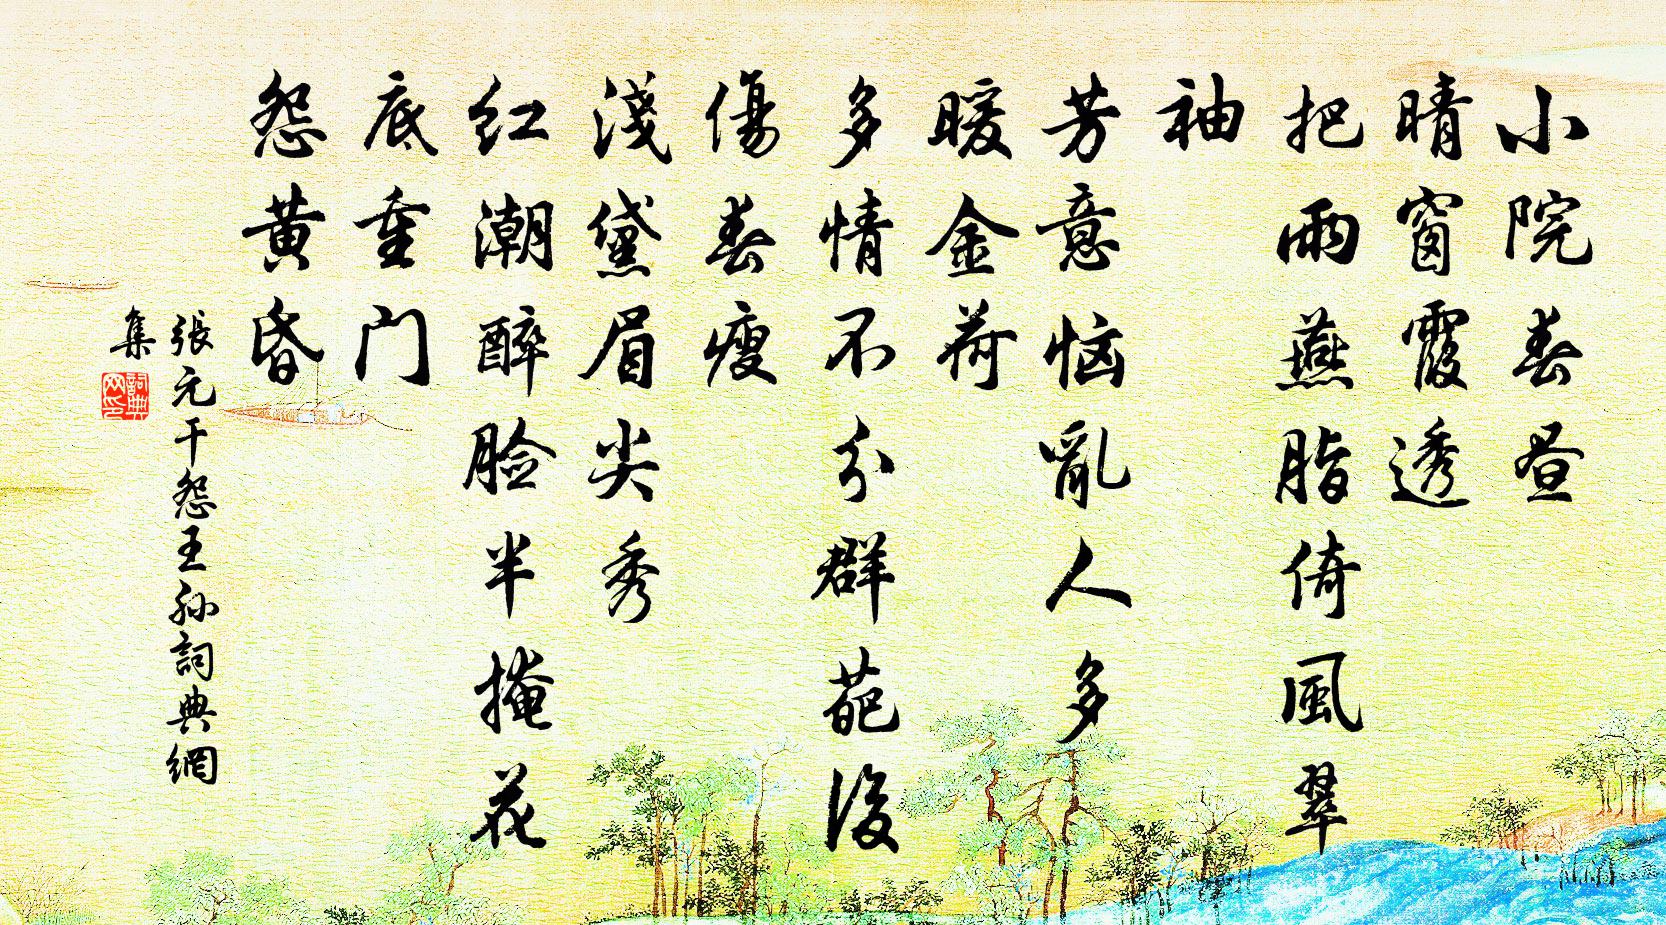 小院春昼
晴窗霞透
把雨燕脂倚風翠
袖
芳意恼亂人多
暖金荷
多情不分群葩後
傷春瘦
淺黛眉尖秀
红潮醉脸半掩花
底重门
怨黄昏
張元干怨王孙詞典網
集
詞典网印